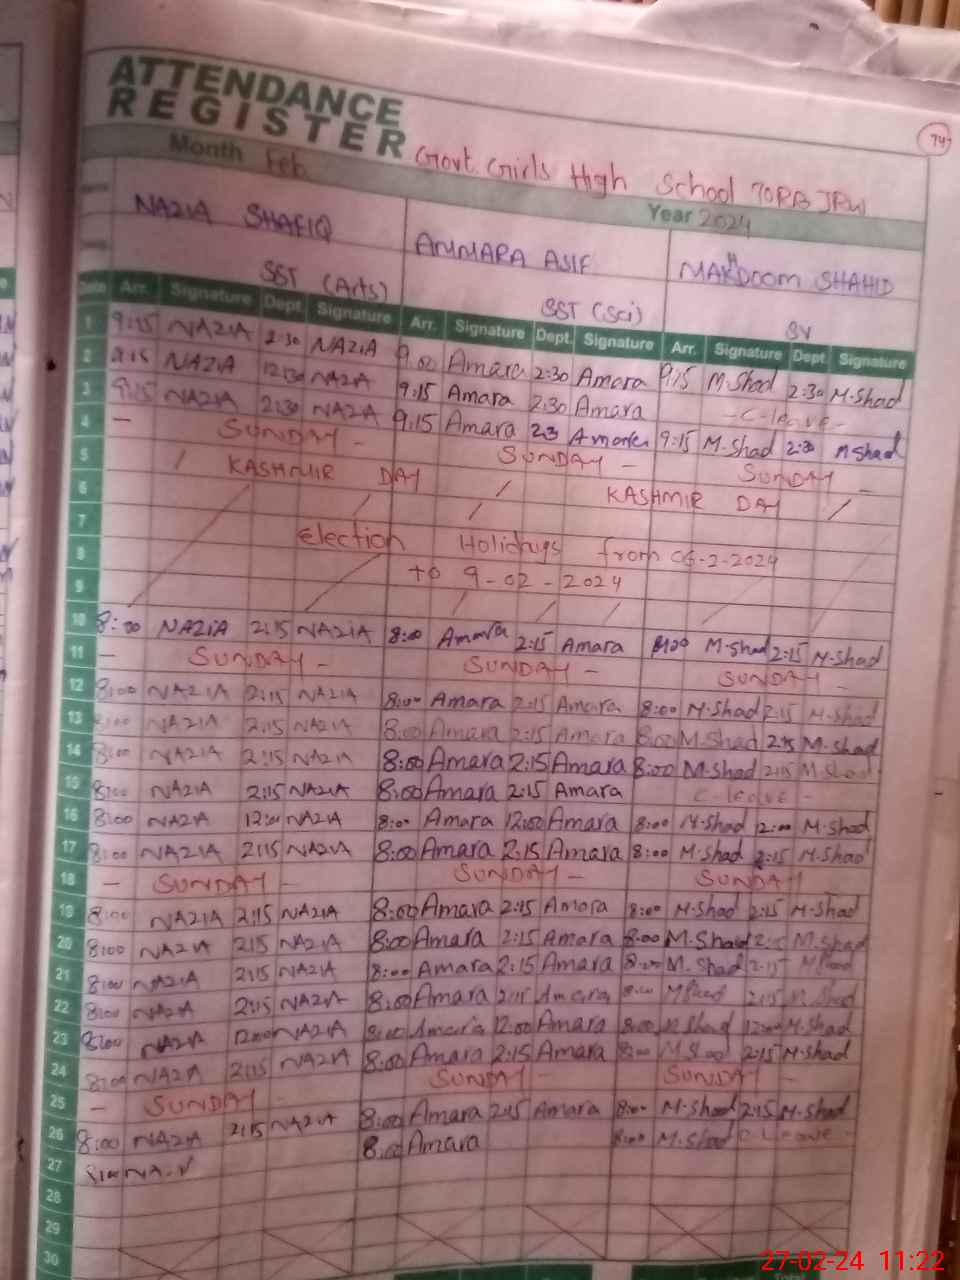 ATTENDANCE
REGISTER
74
Month Feb Govt. Girls High School 70RB JRW
Year 2024
NAZIA SHAFIQ AMMARA ASIF MAKHDOOM SHAHID
SST (Arts) SST (Sci) SV
Date Arr. Signature Dept. Signature Arr. Signature Dept. Signature Arr. Signature Dept. Signature
1 9:15 NAZIA 2:30 NAZIA 9:00 Amara 2:30 Amara 9:15 M.Shad 2:30 M.Shad
2 9:15 NAZIA 12:30 NAZIA 9:15 Amara 2:30 Amara - C-leave -
3 9:15 NAZIA 2:30 NAZIA 9:15 Amara 23 Amara 9:15 M.Shad 2:30 M Shad
4 - SUNDAY - SUNDAY - SUNDAY -
5 / KASHMIR DAY / KASHMIR DAY /
6
7 election Holidays from 06-2-2024
8 to 9-02-2024
9
10 8:00 NAZIA 2:15 NAZIA 8:00 Amara 2:15 Amara 8:00 M.Shad 2:15 M.Shad
11 - SUNDAY - SUNDAY - SUNDAY -
12 8:00 NAZIA 2:15 NAZIA 8:00 Amara 2:15 Amara 8:00 M.Shad 2:15 M.Shad
13 8:00 NAZIA 2:15 NAZIA 8:00 Amara 2:15 Amara 8:00 M.Shad 2:15 M.Shad
14 8:00 NAZIA 2:15 NAZIA 8:00 Amara 2:15 Amara 8:00 M.Shad 2:15 M.Shad
15 8:00 NAZIA 2:15 NAZIA 8:00 Amara 2:15 Amara C-leave -
16 8:00 NAZIA 12:00 NAZIA 8:00 Amara 12:00 Amara 8:00 M.Shad 12:00 M.Shad
17 8:00 NAZIA 2:15 NAZIA 8:00 Amara 2:15 Amara 8:00 M.Shad 2:15 M.Shad
18 - SUNDAY - SUNDAY - SUNDAY -
19 8:00 NAZIA 2:15 NAZIA 8:00 Amara 2:15 Amara 8:00 M.Shad 2:15 M.Shad
20 8:00 NAZIA 2:15 NAZIA 8:00 Amara 2:15 Amara 8:00 M.Shad 2:15 M.Shad
21 8:00 NAZIA 2:15 NAZIA 8:00 Amara 2:15 Amara 8:00 M.Shad 2:15 M Shad
22 8:00 NAZIA 2:15 NAZIA 8:00 Amara 2:15 Amara 8:00 M Shad 2:15 M.Shad
23 8:00 NAZIA 12:00 NAZIA 8:00 Amara 12:00 Amara 8:00 M.Shad 12:00 M.Shad
24 8:00 NAZIA 2:15 NAZIA 8:00 Amara 2:15 Amara 8:00 M.Shad 2:15 M.Shad
25 - SUNDAY - SUNDAY - SUNDAY -
26 8:00 NAZIA 2:15 NAZIA 8:00 Amara 2:15 Amara 8:00 M.Shad 2:15 M.Shad
27 8:00 8:00 Amara 8:00 M.Shad C Leave -
28
29
30
27-02-24 11:22